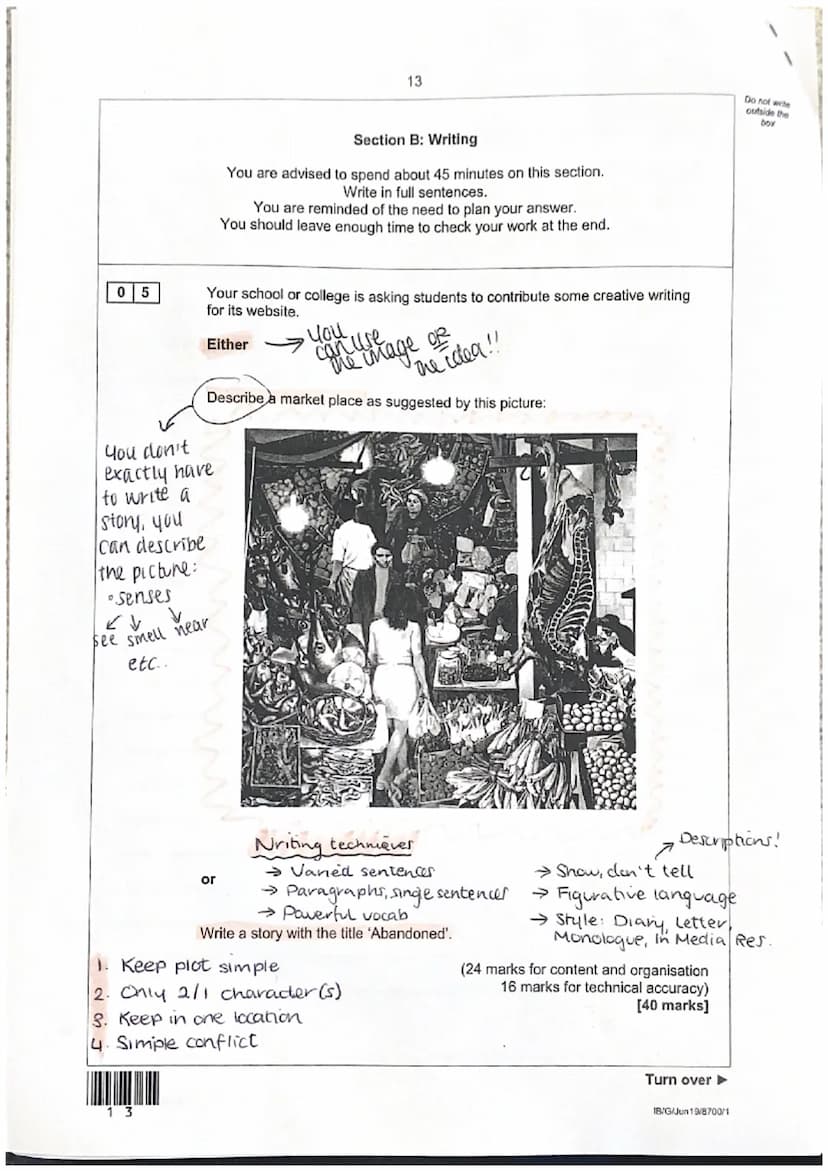 13
Do not write
outside the
box
Section B: Writing
You are advised to spend about 45 minutes on this section.
Write in full sentences.
You are reminded of the need to plan your answer.
You should leave enough time to check your work at the end.
0 5
Your school or college is asking students to contribute some creative writing
for its website.
Either → you
can use
the image or
the idea!!
Describe a market place as suggested by this picture:
you don't
exactly have
to write a
story, you
can describe
the picture:
• senses
↙ ↓ ↘
see smell hear
etc..
Writing techniques
→ Varied sentences
→ Paragraphs, single sentences
→ Powerful vocab
↗ Descriptions!
→ Show, don't tell
→ Figurative language
→ Style: Diary, Letter,
Monologue, In Media Res.
or
Write a story with the title ‘Abandoned’.
1. Keep plot simple
2. Only 2/1 character(s)
3. Keep in one location
4. Simple conflict
(24 marks for content and organisation
16 marks for technical accuracy)
[40 marks]
Turn over ►
1 3
IB/G/Jun19/8700/1